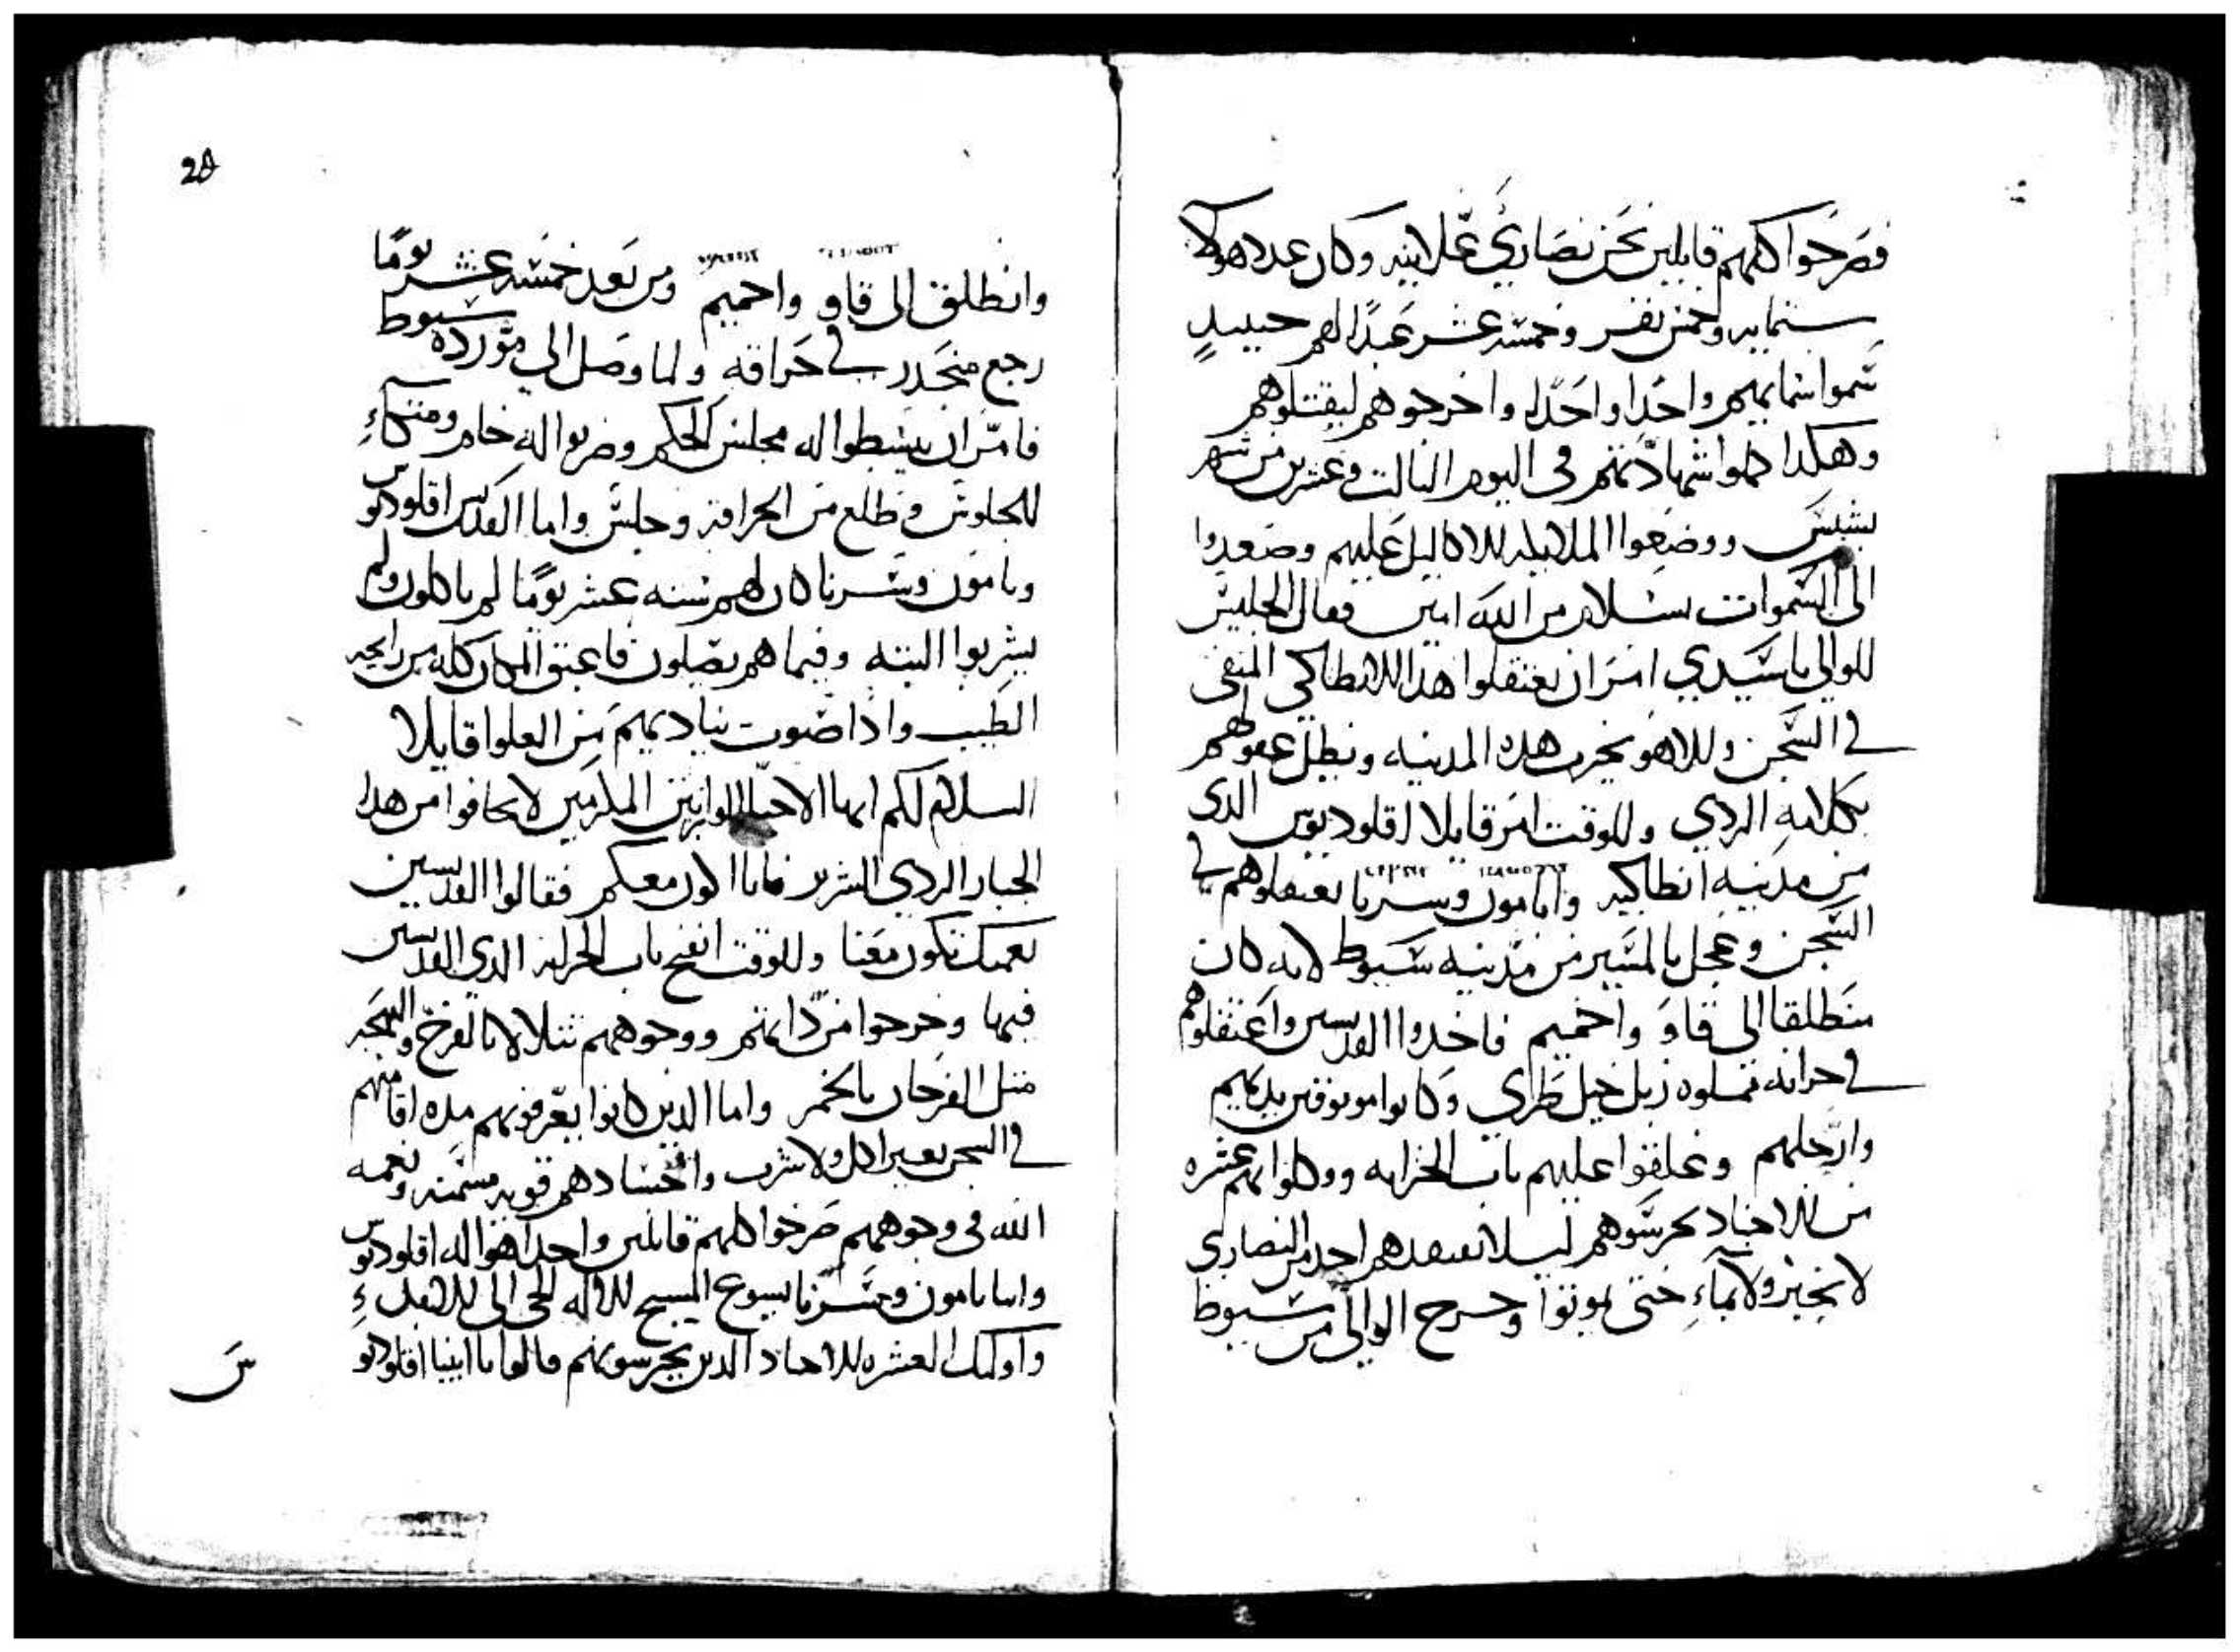 فصرحوا كلهم قايلين نحن نصاري علانيه وكان عدد هولا
ستمايه وخمس نفر وخمسه عشر عبدًا لهم حينيدٍ
سموا اسمايهم واحدًا واحدًا واخرجوهم ليقتلوهم
وهكدا كملوا شهادتهم في اليوم الثالت وعشرين من شهر
بشنس ووضعوا الملايكه الاكاليل عليهم وصعدوا
الى السموات بسلام من الله امين فقال الجليس
للوالي ياسيدي امر ان يعتقلوا هدا الانطاكي المنفى
في السجن والا هو يخرب هده المدينه ويطل عقولهم
بكلامه الردي وللوقت امر قايلا اقلوديوس الدى
من مدينه انطاكيه وابامون وسرنا يعتقلوهم في
السجن وعجل بالمسير من مدينه سيوط لانه كان
منطلقا الى قاو واخميم فاخدوا القديسين واعتقلوهم
في خزانه مملوه زبل خيل طري وكانوا موتوقين بديهم
وارجلهم وغلقوا عليهم باب الخزانه ووكلوا بهم عشره
من الاجناد يحرسوهم ليلا يفتقدهم احد من النصارى
لا بخبز ولا بماءِ حتى يموتوا وخرج الوالى من سيوط
20
وانطلق الى قاو واخميم ومن بعد خمسه عشر يومًا
رجع منحدر في حراقه ولما وصل الى مورده سيوط
فامر ان يبسطوا له مجلس الحكم وضربوا له خام ومتكاءِ
للجلوس وطلع من الحراقه وجلس واما القديس اقلوديوس
وبامون وسرنا كان لهم سته عشر يومًا لم ياكلون ولم
يشربوا البته وفيما هم يصلون فاعبق المكان كله من رايحه
الطيب وادا صوت يناديهم من العلوا قايلا
السلام لكم ايها الاحبا اللوابتين المكرمين لا تخافوا من هدا
الجبار الردي الشرير فانا اكون معكم فقالوا القديسين
نعمتك تكون معنا وللوقت انفتح باب الخزانه الدي القديسين
فيها وخرجوا من داتهم ووجوههم تتلالا بالفرح والبهجه
متل الفرحان بالخمر واما الدين كانوا يعرفونهم مده اقامتهم
في السجن بغير اكل ولا شرب واجسادهم قويه مسمنه ونعمه
الله فى وجوههم صرخوا كلهم قايلين واحد هو اله اقلوديوس
وابا بامون وسرنا يسوع المسيح الاله الحى الى الابد ءِ
واوليك العشره الاجناد الدين يحرسونهم قالوا يا ابينا اقلوديو
س